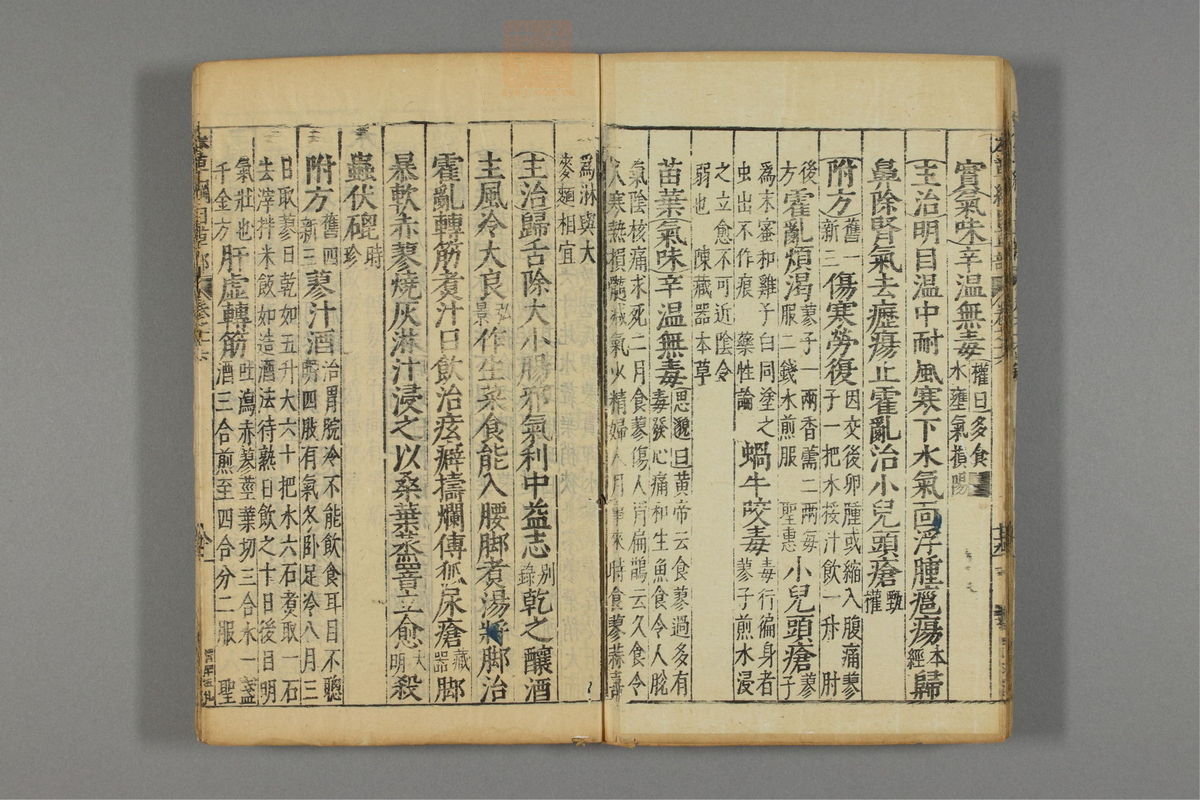 實氣味辛溫無毒權曰多食
水壅氣損陽
主治明目温中耐風寒下水氣靣浮腫癰瘍本經歸
鼻除腎氣去癧瘍止霍亂治小兒頭瘡甄權
附方舊一新三傷寒勞復因交後卵腫或縮入腹痛蓼
子一把水挼汁飲一升　肘
後方霍亂煩渴蓼子一兩香薷二兩每
服二錢水煎服　聖惠小兒頭瘡蓼子
為末蜜和雞子白同塗之
虫出不作痕　藥性論蝸牛咬毒毒行徧身者
蓼子煎水浸
之立愈不可近陰令
弱也　陳藏器本草
苗葉氣味辛溫無毒思邈曰黄帝云食蓼過多有
毒發心痛和生魚食令人脫
氣陰核痛求死二月食蓼傷人胃扁鵲云久食令
人寒熱損髓減氣少精婦人月事來時食蓼蒜喜
為淋與大
麥麵相宜
主治歸舌除大小腸邪氣利中益志別錄乾之釀酒
主風冷大良弘景作生菜食能入腰脚煮湯將脚治
霍亂轉筋煮汁日飲治痃癖擣爛傅狐尿瘡藏器脚
暴軟赤蓼燒灰淋汁浸之以桑葉蒸罯立愈大明殺
蟲伏砒時珍
附方舊四新三蓼汁酒治胃脘冷不能飲食耳目不聰
明四肢有氣冬卧足冷八月三
日取蓼日乾如五升大六十把水六石煮取一石
去滓拌米飯如造酒法待熟日飲之十日後目明
氣壯也
千金方肝虛轉筋吐瀉赤蓼莖葉切三合水一盞
酒三合煎至四合分二服　聖